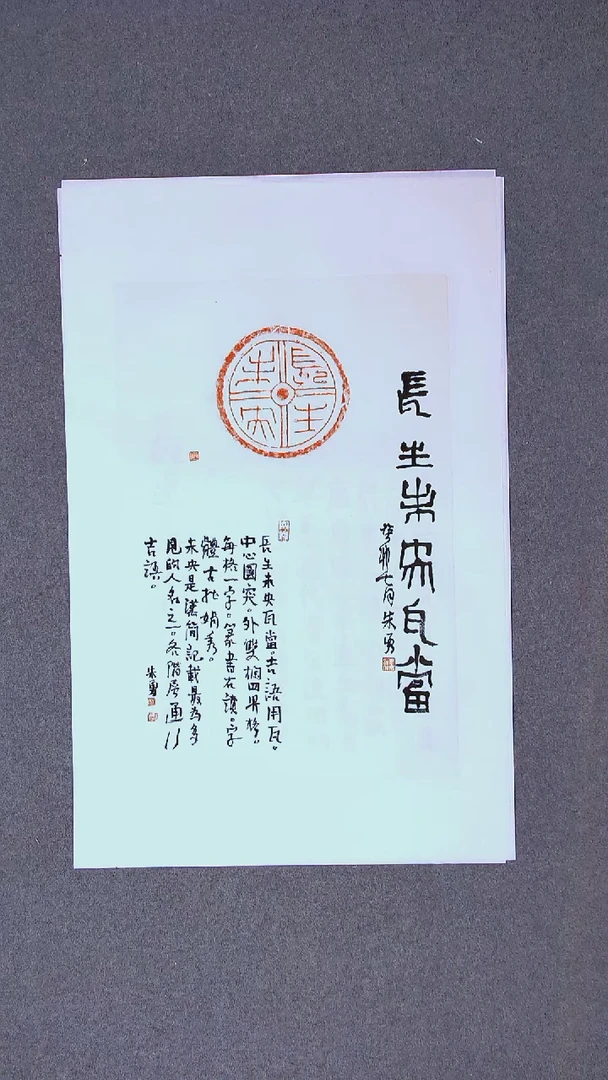 長生未央瓦當
癸卯七月朱勇
長生未央
長生未央瓦當。吉語用瓦。
中心圓突。外雙欄四界格。
每格一字。篆書右讀。字
體古拙娟秀。
未央是漢簡記載最為多
見的人名之一。各階層通行
吉語。
朱勇